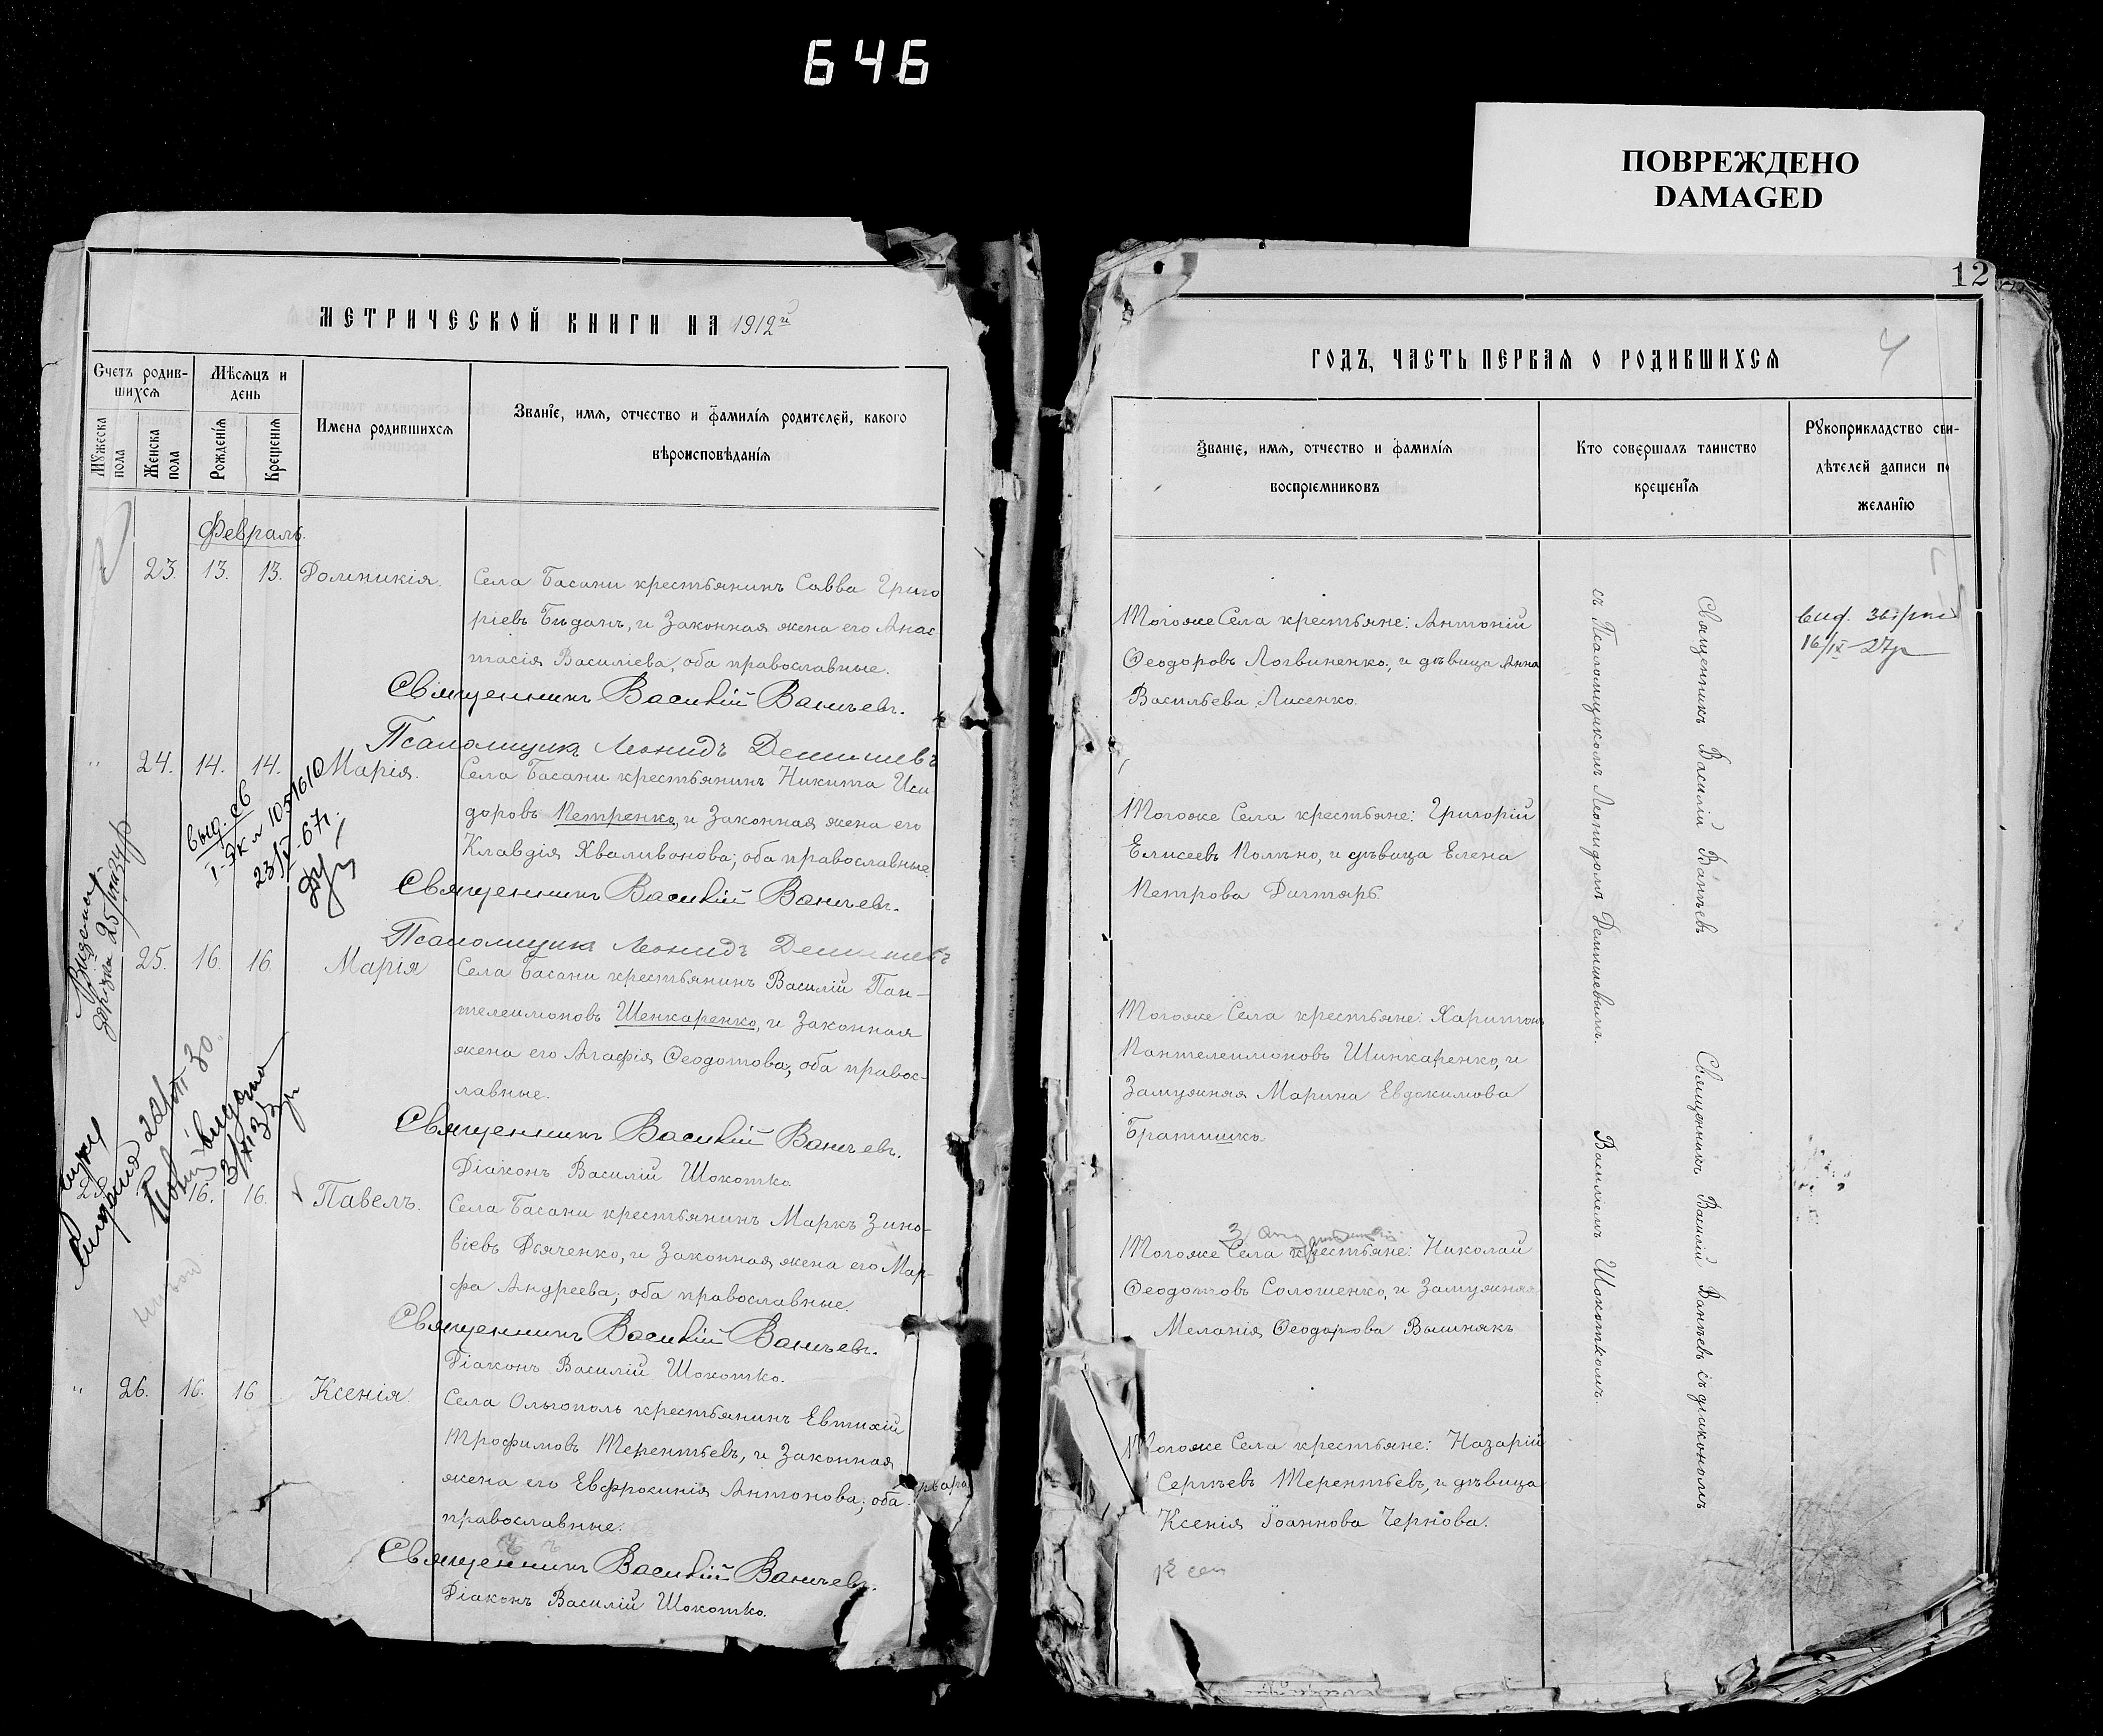 646
ПОВРЕЖДЕНО
DAMAGED
12
МЕТРИЧЕСКОЙ КНИГИ НА 1912й
Счетъ родив-
шихся
Мѣсяцъ и
день
Мужеска
пола
Женска
пола
Рожденія
Крещенія
Имена родившихся
Званіе, имя, отчество и фамилія родителей, какого
вѣроисповѣданія
Февраль.
23. 13. 13. Домникія.
Села Басани крестьянинъ Савва Григо
ріевъ Бѣданъ, и Законная жена его Анас
тасія Василіева, оба православные.
Священникъ Василій Ванчевъ.
Псаломщикъ Леонидъ Демишевъ
" 24. 14. 14. Марія.
Села Басани крестьянинъ Никита Иси
доровъ Петренко, и Законная жена его
Клавдія Хваливонова; оба православные.
Священникъ Василій Ванчевъ.
Псаломщикъ Леонидъ Демишевъ
25. 16. 16 Марія
Села Басани крестьянинъ Василій Пан-
телеимоновъ Шенкаренко, и Законная
жена его Агафія Феодотова, оба правос-
лавные.
Священникъ Василій Ванчевъ.
Діаконъ Василій Шокотко
16. 16. Павелъ.
Села Басани крестьянинъ Маркъ Зино-
віевъ Дьяченко, и Законная жена его Мар-
фа Андреева; оба православные.
Священникъ Василій Ванчевъ.
Діаконъ Василій Шокотко.
" 26. 16. 16 Ксенія.
Села Ольгополь крестьянинъ Евтихій
Трофимовъ Терентьевъ, и Законная
жена его Евфросинія Антонова; оба
православные.
Священникъ Василій Ванчевъ.
Діаконъ Василій Шокотко.
ГОДЪ, ЧАСТЬ ПЕРВАЯ О РОДИВШИХСЯ
4
Званіе, имя, отчество и фамилія
воспріемниковъ
Кто совершалъ таинство
крещенія
Рукоприкладство сви-
дѣтелей записи по
желанію
Тогоже Села крестьяне: Антоній
Феодоровъ Логвиненко, и дѣвица Анна
Васильева Лисенко.
Тогоже Села крестьяне: Григорій
Елисеевъ Полѣно, и дѣвица Елена
Петрова Дигтярь.
Тогоже Села крестьяне: Харитонъ
Пантелеимоновъ Шинкаренко, и
Замужняя Марина Евдокимова
Братишко.
Тогоже Села крестьяне: Николай
Феодотовъ Солошенко, и Замужняя
Меланія Феодорова Вишнякъ
Тогоже Села крестьяне: Назарій
Сергѣевъ Терентьевъ, и дѣвица
Ксенія Іоаннова Чернова.
Священникъ Василій Ванчевъ
съ Псаломщикомъ Леонидомъ Демишевымъ.
Священникъ Василій Ванчевъ съ діакономъ
Василіемъ Шокоткомъ.
16/IX-27р